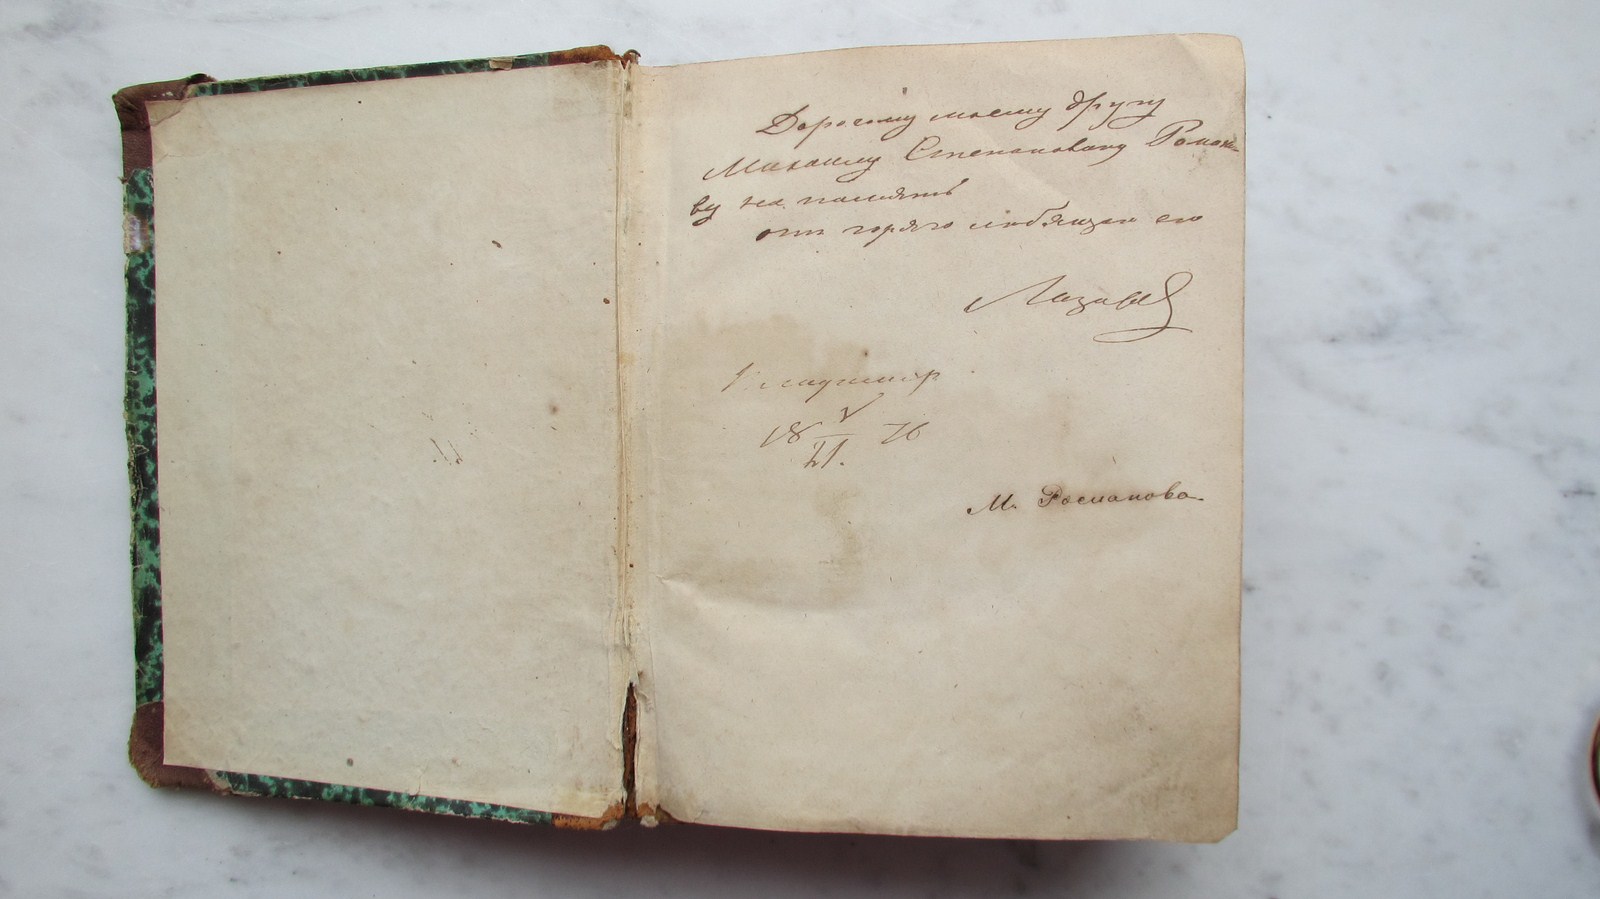 Дорогому моему другу
Михаилу Степановичу Романо-
ву на память
отъ горячо любящаго его
Владимиръ
V
18 — 76
21.
М. Романова.